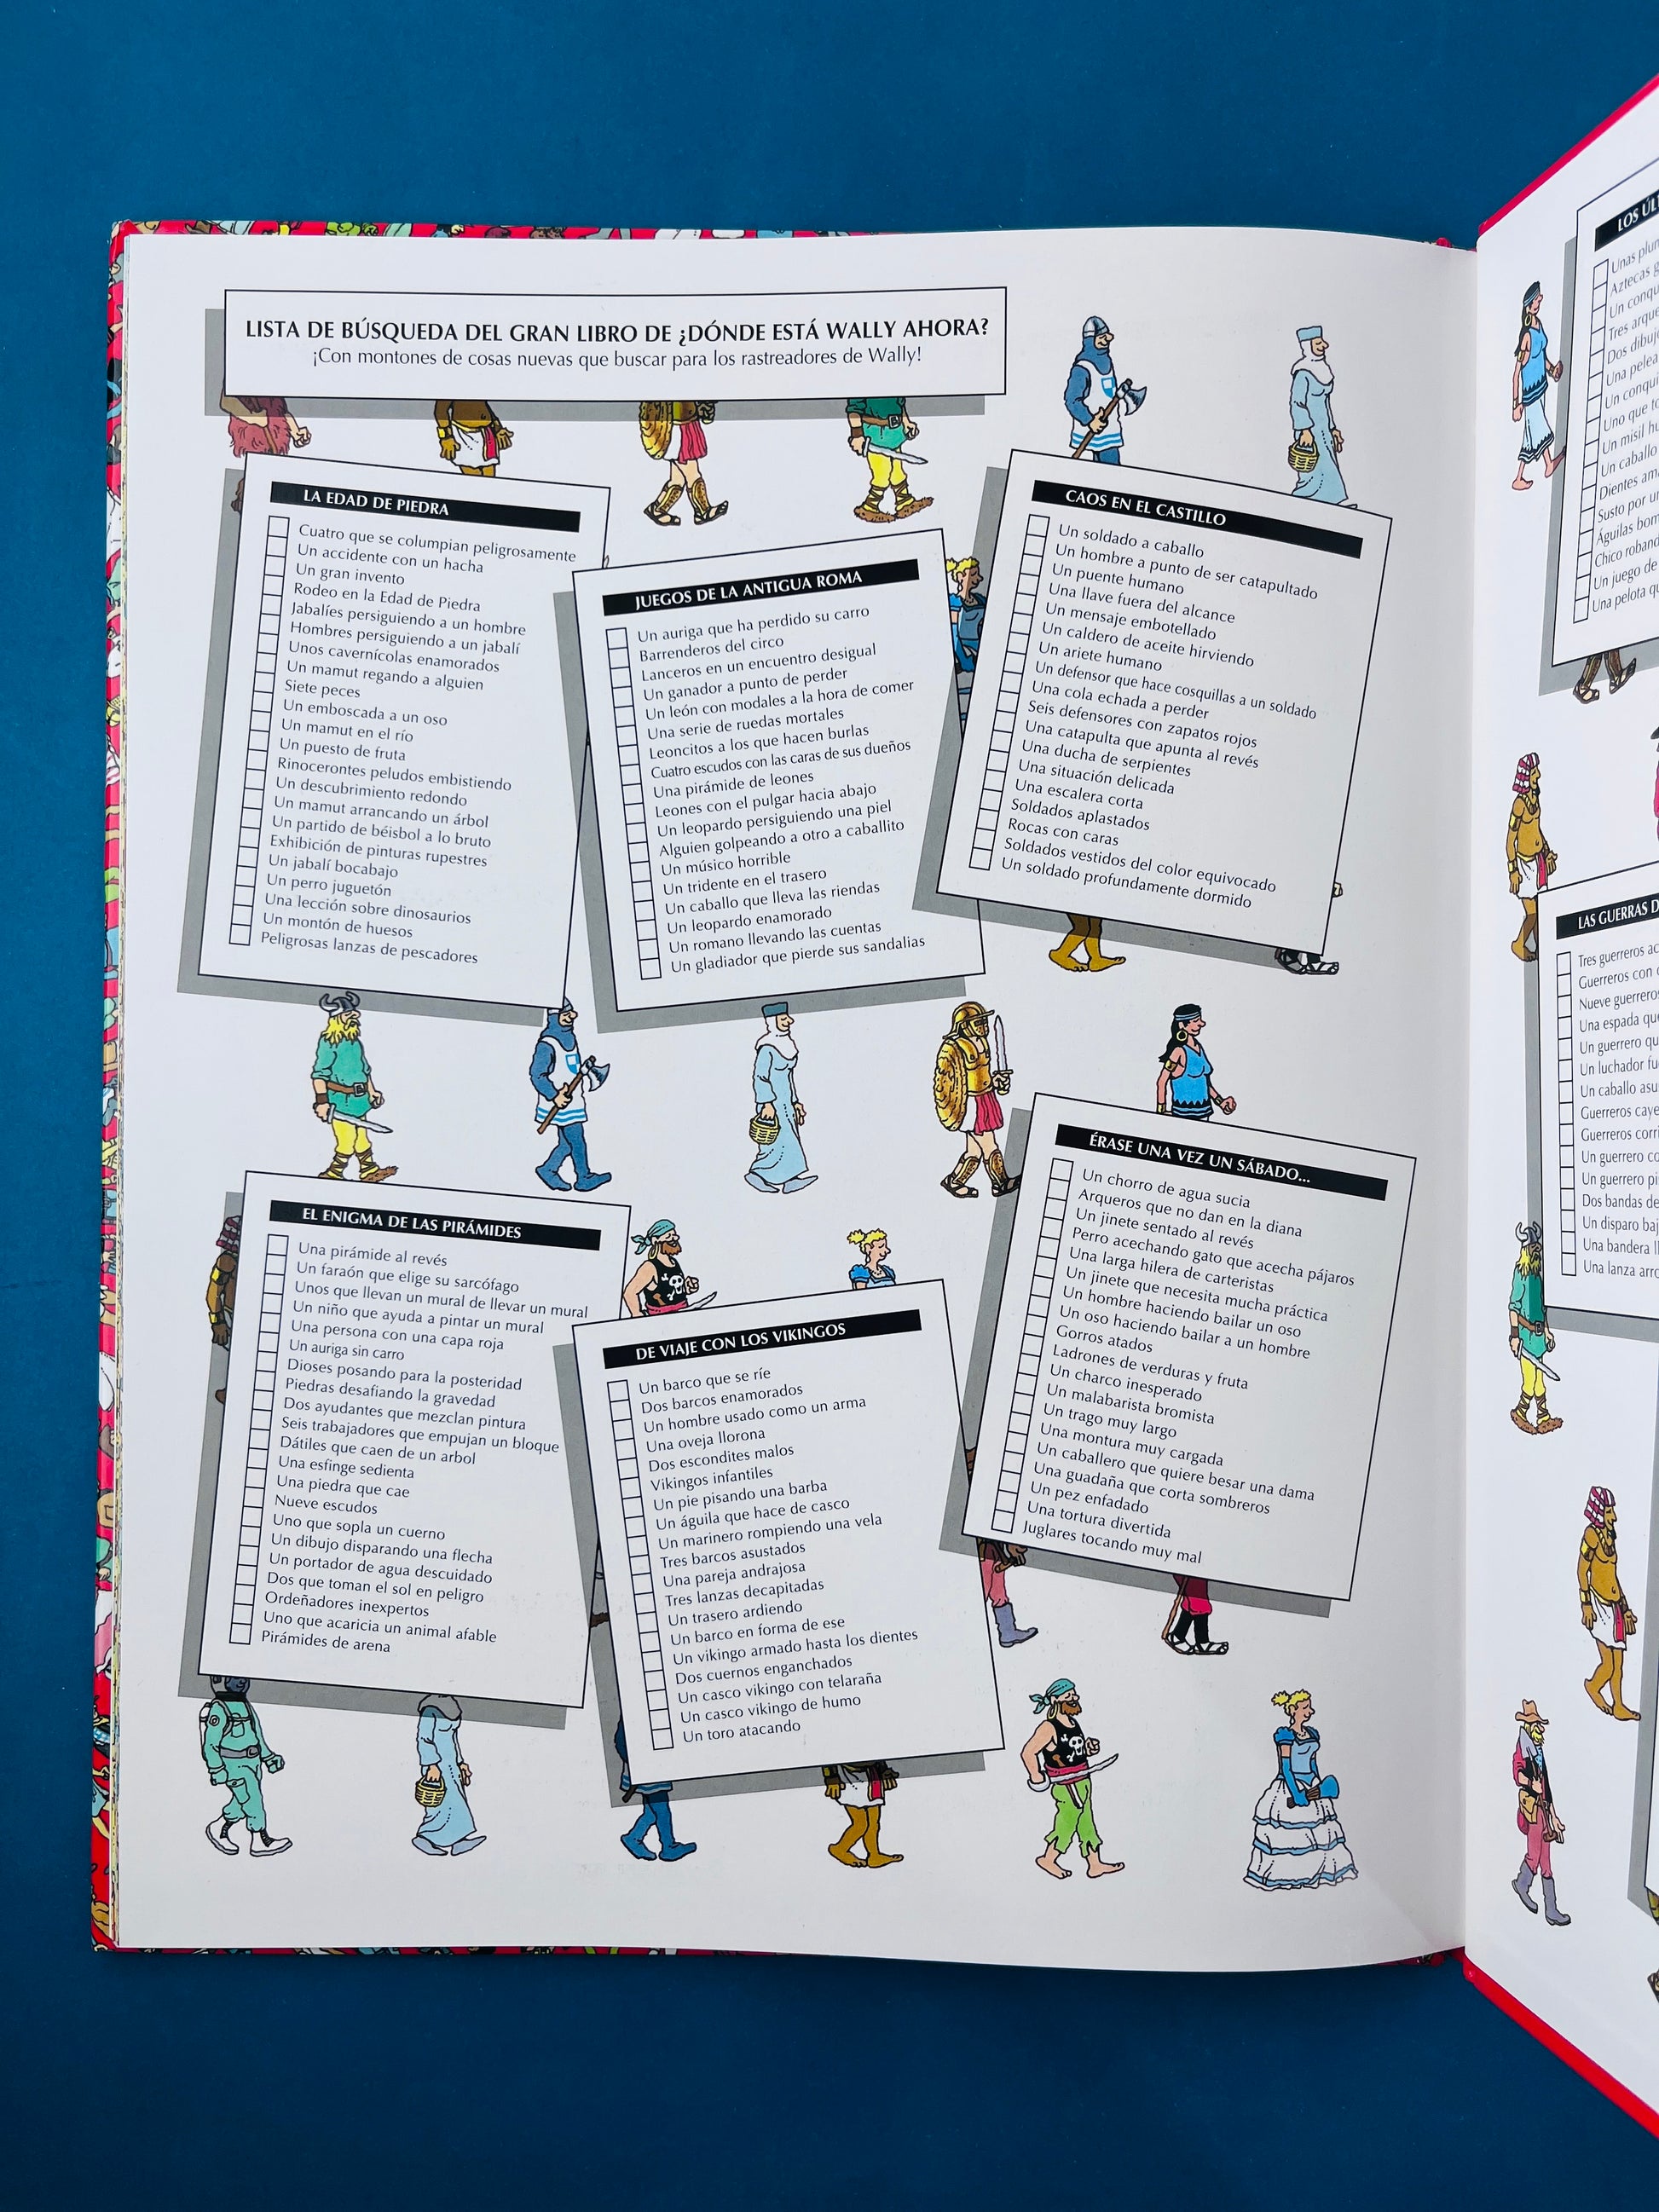 LISTA DE BÚSQUEDA DEL GRAN LIBRO DE ¿DÓNDE ESTÁ WALLY AHORA?
¡Con montones de cosas nuevas que buscar para los rastreadores de Wally!
LA EDAD DE PIEDRA
Cuatro que se columpian peligrosamente
Un accidente con un hacha
Un gran invento
Rodeo en la Edad de Piedra
Jabalíes persiguiendo a un hombre
Hombres persiguiendo a un jabalí
Unos cavernícolas enamorados
Un mamut regando a alguien
Siete peces
Un emboscada a un oso
Un mamut en el río
Un puesto de fruta
Rinocerontes peludos embistiendo
Un descubrimiento redondo
Un mamut arrancando un árbol
Un partido de béisbol a lo bruto
Exhibición de pinturas rupestres
Un jabalí bocabajo
Un perro juguetón
Una lección sobre dinosaurios
Un montón de huesos
Peligrosas lanzas de pescadores
JUEGOS DE LA ANTIGUA ROMA
Un auriga que ha perdido su carro
Barrenderos del circo
Lanceros en un encuentro desigual
Un ganador a punto de perder
Un león con modales a la hora de comer
Una serie de ruedas mortales
Leoncitos a los que hacen burlas
Cuatro escudos con las caras de sus dueños
Una pirámide de leones
Leones con el pulgar hacia abajo
Un leopardo persiguiendo una piel
Alguien golpeando a otro a caballito
Un músico horrible
Un tridente en el trasero
Un caballo que lleva las riendas
Un leopardo enamorado
Un romano llevando las cuentas
Un gladiador que pierde sus sandalias
CAOS EN EL CASTILLO
Un soldado a caballo
Un hombre a punto de ser catapultado
Un puente humano
Una llave fuera del alcance
Un mensaje embotellado
Un caldero de aceite hirviendo
Un ariete humano
Un defensor que hace cosquillas a un soldado
Una cola echada a perder
Seis defensores con zapatos rojos
Una catapulta que apunta al revés
Una ducha de serpientes
Una situación delicada
Una escalera corta
Soldados aplastados
Rocas con caras
Soldados vestidos del color equivocado
Un soldado profundamente dormido
EL ENIGMA DE LAS PIRÁMIDES
Una pirámide al revés
Un faraón que elige su sarcófago
Unos que llevan un mural de llevar un mural
Un niño que ayuda a pintar un mural
Una persona con una capa roja
Un auriga sin carro
Dioses posando para la posteridad
Piedras desafiando la gravedad
Dos ayudantes que mezclan pintura
Seis trabajadores que empujan un bloque
Dátiles que caen de un arbol
Una esfinge sedienta
Una piedra que cae
Nueve escudos
Uno que sopla un cuerno
Un dibujo disparando una flecha
Un portador de agua descuidado
Dos que toman el sol en peligro
Ordeñadores inexpertos
Uno que acaricia un animal afable
Pirámides de arena
DE VIAJE CON LOS VIKINGOS
Un barco que se ríe
Dos barcos enamorados
Un hombre usado como un arma
Una oveja llorona
Dos escondites malos
Vikingos infantiles
Un pie pisando una barba
Un águila que hace de casco
Un marinero rompiendo una vela
Tres barcos asustados
Una pareja andrajosa
Tres lanzas decapitadas
Un trasero ardiendo
Un barco en forma de ese
Un vikingo armado hasta los dientes
Dos cuernos enganchados
Un casco vikingo con telaraña
Un casco vikingo de humo
Un toro atacando
ÉRASE UNA VEZ UN SÁBADO...
Un chorro de agua sucia
Arqueros que no dan en la diana
Un jinete sentado al revés
Perro acechando gato que acecha pájaros
Una larga hilera de carteristas
Un jinete que necesita mucha práctica
Un hombre haciendo bailar un oso
Un oso haciendo bailar a un hombre
Gorros atados
Ladrones de verduras y fruta
Un charco inesperado
Un malabarista bromista
Un trago muy largo
Una montura muy cargada
Un caballero que quiere besar una dama
Una guadaña que corta sombreros
Un pez enfadado
Una tortura divertida
Juglares tocando muy mal
LOS
Unas
Aztecas
Un
Tres
Dos
Una pelea
Un
Uno que
Un misil
Un caballo
Dientes
Susto por
Águilas
Chico
Un juego de
Una pelota
LAS GUERRAS
Tres guerreros
Guerreros con
Nueve
Una espada
Un guerrero
Un luchador
Un caballo
Guerreros
Guerreros
Un guerrero
Un guerrero
Dos bandas
Un disparo
Una bandera
Una lanza